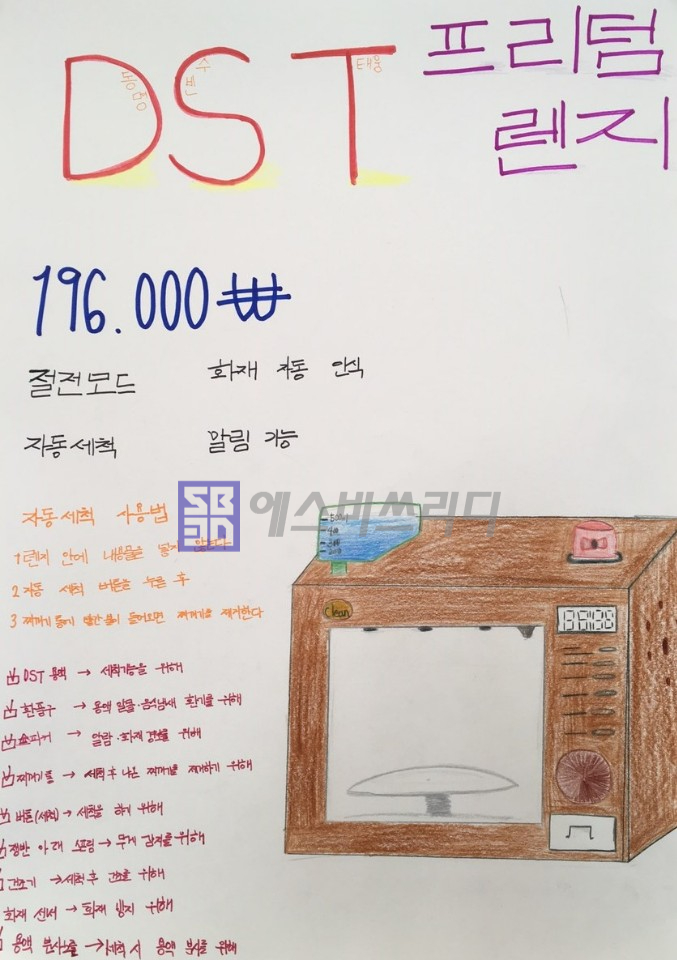 DST 프리덤
동훈 수빈 태웅
렌지
196.000₩
절전모드 화재 자동 인식
자동세척 알림 가능
자동세척 사용법
1 렌지 안에 내용물을 넣지
2 자동 세척 버튼을 누른 후
3 찌꺼기통에 빨간불이 들어오면 찌꺼기를 제거한다
DST 용액 → 세척기능을 위해
환풍구 → 용액 알콜·음식냄새 환기를 위해
스피커 → 알람·화재 경보를 위해
찌꺼기통 → 세척 후 나온 찌꺼기를 제거하기 위해
버튼(세척) → 세척을 하기 위해
쟁반 아래 스프링 → 무게 감지를 위해
건조기 → 세척 후 건조를 위해
화재 센서 → 화재 방지 위해
용액 분사노즐 → 세척 시 용액 분사를 위해
500ml
Clean
에스비쓰리디